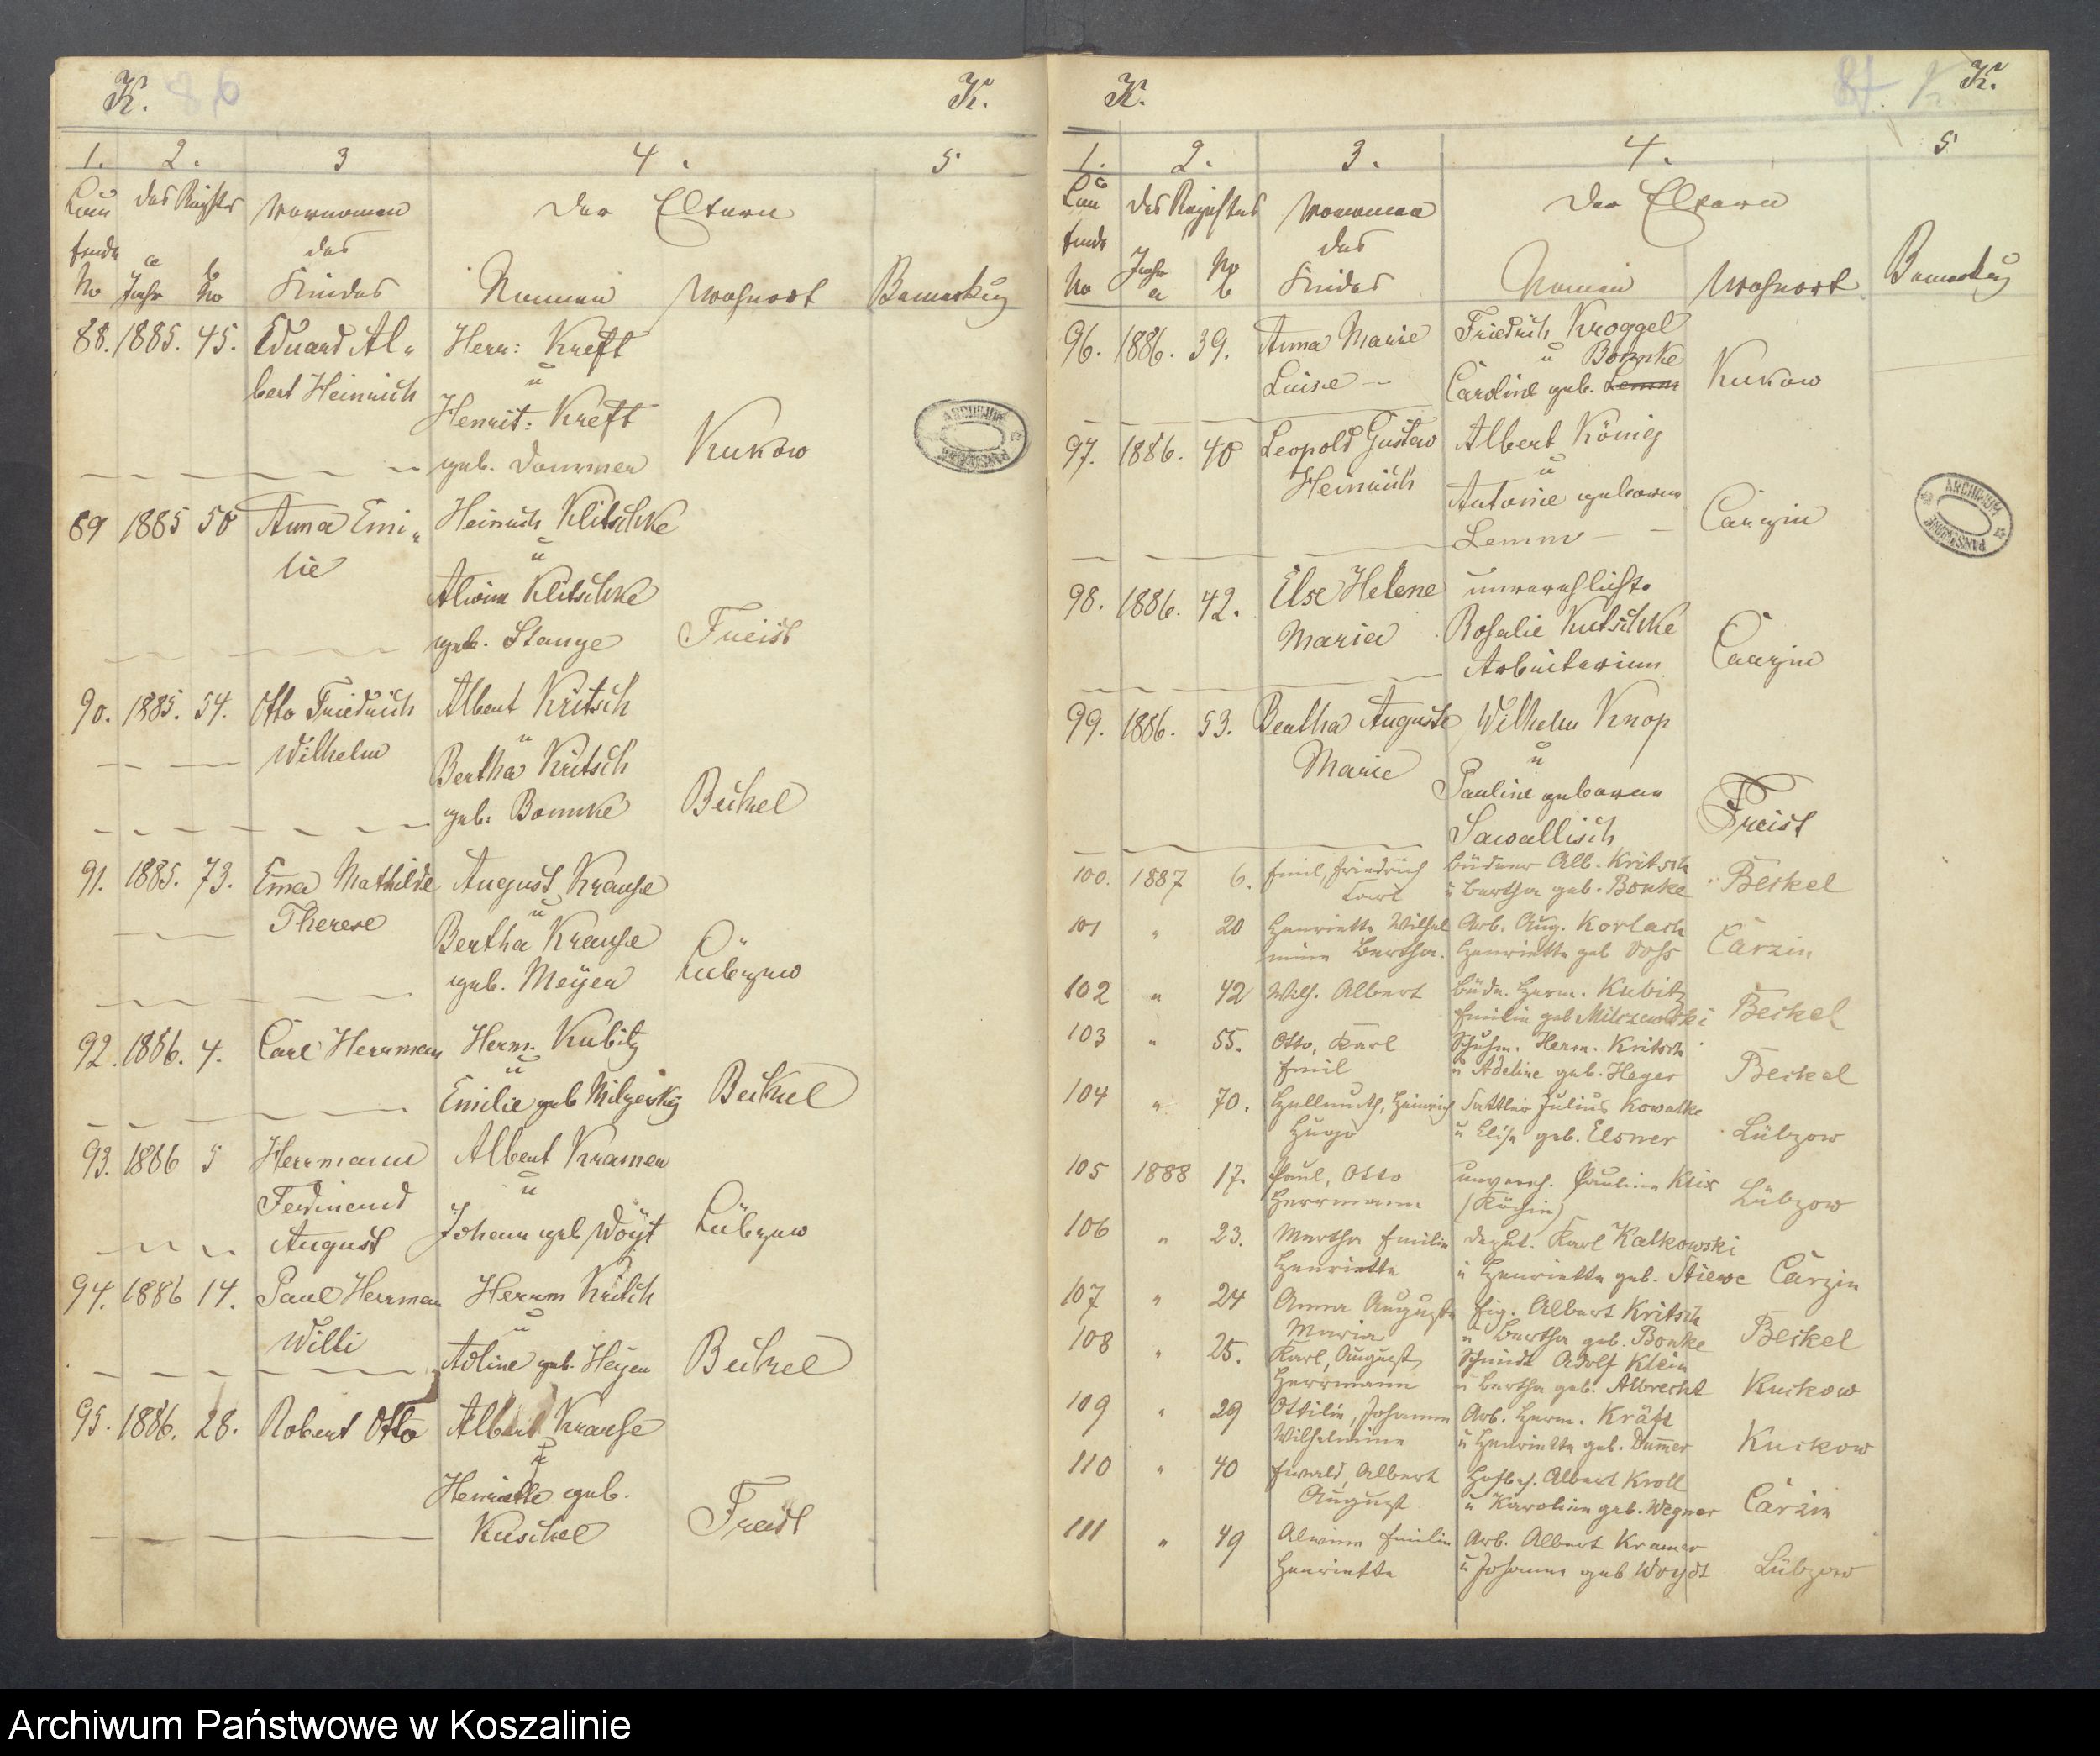 K. 86 K.
1. 2. 3 4. 5
Lau des Registers Vornamen der Eltern
fende a b des
No Jahr No Kindes Namen Wohnort Bemerkung
88. 1885. 45. Eduard Al- Herr: Kreft
u
bert Heinrich Henrit: Kreft
geb. Dammer Kukow
89 1885 50 Anna Emi- Heinrich Klitschke
u
lie Alwine Klitschke
geb. Stange Freist
90. 1885. 54. Otto Friedrich Albert Kritsch
u
Wilhelm Bertha Kritsch
geb. Bonnke Beckel
91. 1885. 73. Ema Mathilde August Krause
u
Therese Bertha Krause
geb. Meyer Lübzow
92. 1886. 4. Carl Herrman Herm. Kubitz
u
Emilie geb Beckel
93. 1886 5 Herrmann Albert Kramer
Ferdinand u
August Johann geb Woÿt Lübzow
94. 1886 14. Paul Herrman Herrm Kritsch
u
Willi Adline geb. Heyer Beckel
95. 1886. 28. Robert Otto Albert Krause
u
Henriette geb.
Kuschel Freist
ARCHIWUM PAŃSTWOWE
K. 87. K.
1. 2. 3. 4. 5
Lau des Registers Vornamen der Eltern
fende des
No Jahr a No b Kindes Namen Wohnort Bemerkung
96. 1886. 39. Anna Marie Friedrich Kroggel
u Bonnke
Luise Caroline geb. Lemm Kukow
97. 1886. 40 Leopold Gustav Albert König
u
Heinrich Antonie geborene
Lemm Carzin
98. 1886. 42. Else Helene unverehlichte
Maria Rosalie Kutschke
Arbeiterinn Carzin
99. 1886. 53. Bertha Auguste Wilhelm Knop
u
Marie Pauline geborene
Sawallisch Freist
100. 1887 6. Emil, Friedrich Büdner Alb. Kritsch
Carl u Bertha geb. Bonke Beckel
101 " 20 Henriette Wilhel Arb. Aug. Korlach
mine Bertha. Henriette geb Voss Carzin
102 " 42 Wilh. Albert Büdn. Herm. Kubitz
Emilie geb Milczewski Beckel
103 " 55. Otto, Karl Schuhm. Herm. Kritsch
Emil u Adeline geb. Heyer Beckel
104 " 70. Hellmuth, Heinrich Sattler Julius Kowalke
Hugo u Elise geb. Elsner Lübzow
105 1888 17. Paul, Otto unvereh. Pauline Klix
Herrmann (Köchin) Lübzow
106 " 23. Martha Emilie Deput. Karl Kalkowski
Henriette u Henriette geb. Stiewe Carzin
107 " 24 Anna Auguste Eig. Albert Kritsch
Maria u Bertha geb. Bonke Beckel
108 " 25. Karl, August Schmidt Adolf Klein
Herrmann u Bertha geb. Albrecht Kuckow
109 " 29 Ottilie, Johanna Arb. Herm. Kräft
Wilhelmine u Henriette geb. Dummer Kuckow
110 " 40 Ewald, Albert Hofbes. Albert Kroll
August u Karoline geb. Wegner Carzin
111 " 49 Alwine Emilie Arb. Albert Kramer
Henriette u Johanna geb Woydt Lübzow
ARCHIWUM PAŃSTWOWE
Archiwum Państwowe w Koszalinie